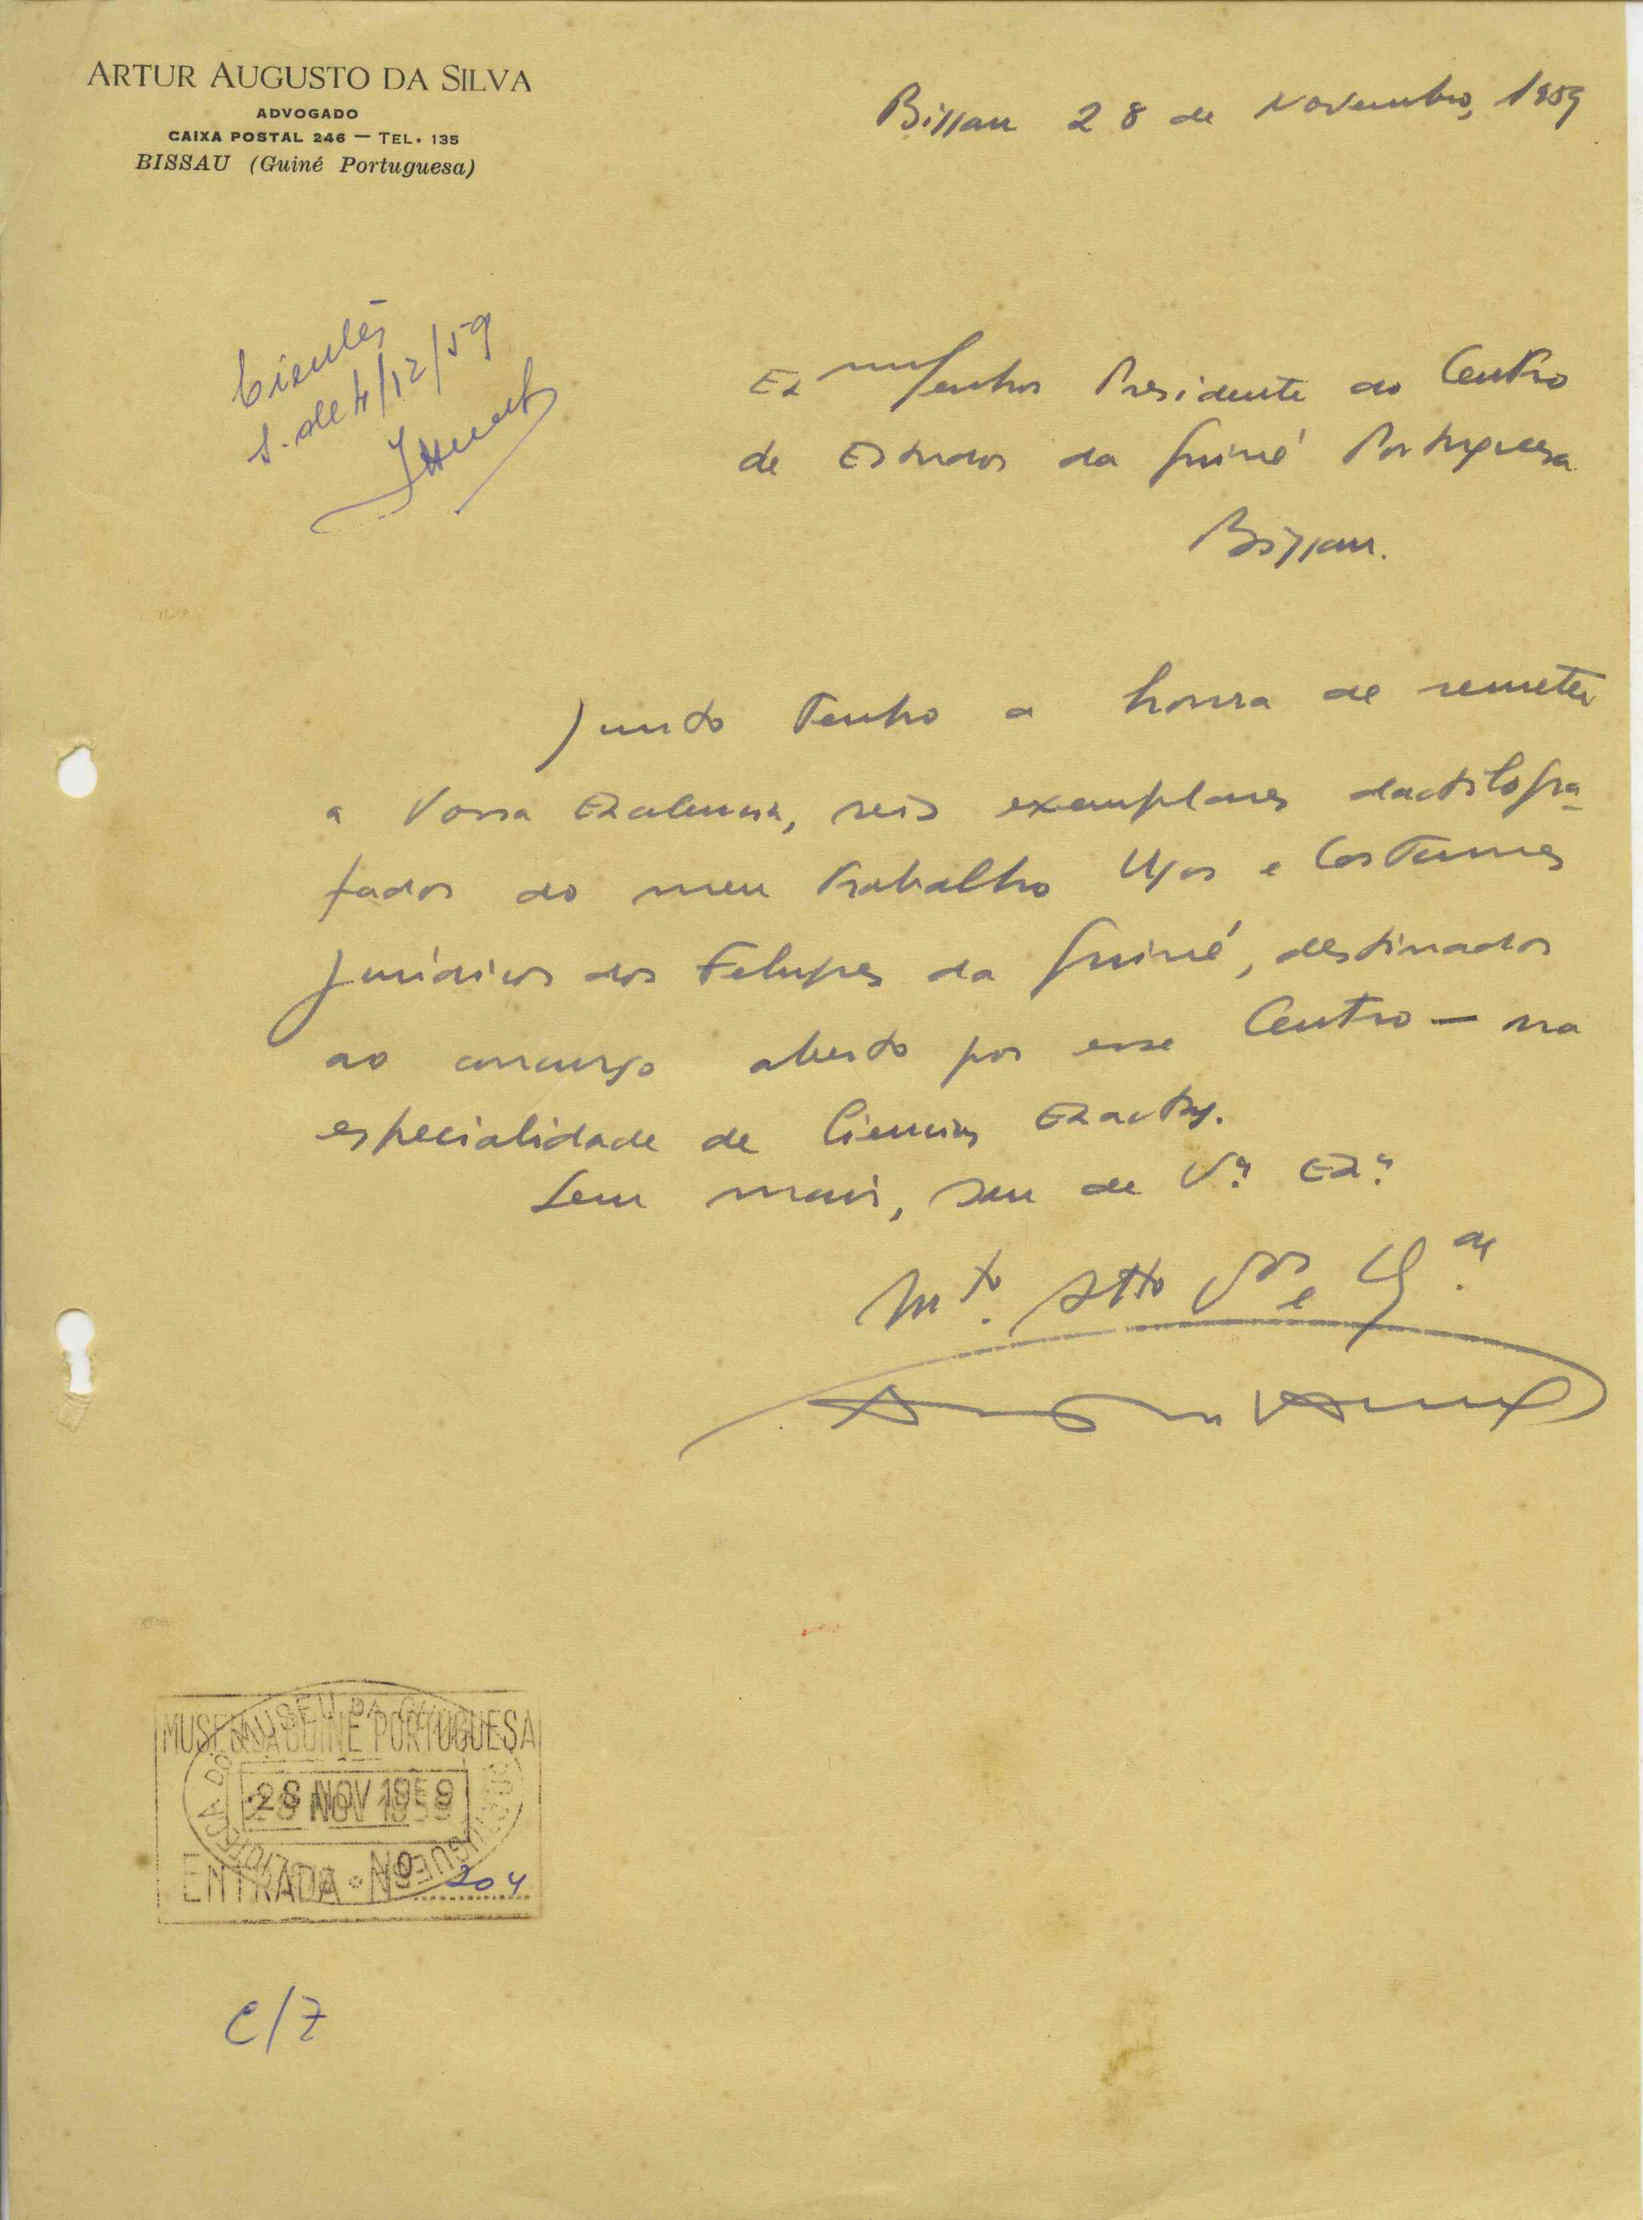 ARTUR AUGUSTO DA SILVA
ADVOGADO
CAIXA POSTAL 246 — TEL. 135
BISSAU (Guiné Portuguesa)
Bissau 28 de Novembro, 1959
Cientes
S. de 4/12/59
Ex mo Senhor Presidente do Centro
de Estudos da Guiné Portuguesa
Bissau.
Junto tenho a honra de remeter
a Vossa Excelencia, seis exemplares dactilogra-
fados do meu trabalho Usos e Costumes
Jurídicos dos Felupes da Guiné, destinados
ao concurso aberto por esse Centro — na
especialidade de Ciencias Exactas.
Sem mais, sou de V.ª Ex.ª
M.to Atto Vor e
MUSEU DA GUINÉ PORTUGUESA
28 NOV 1959
ENTRADA Nº 204
C/7